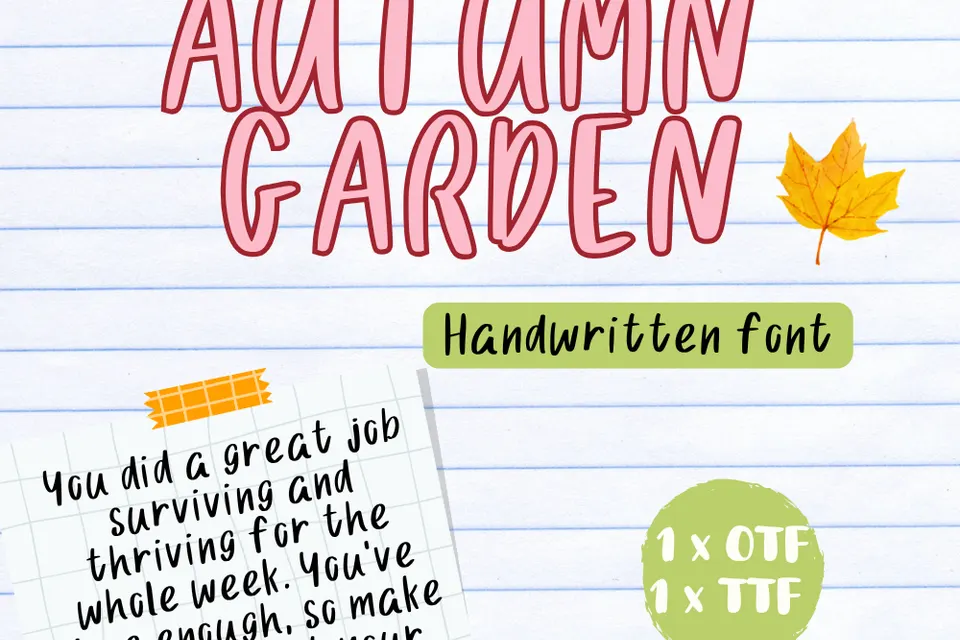 AUTUMN
GARDEN
Handwritten font
You did a great job
surviving and
thriving for the
whole week. You've
enough, so make
your
1 x OTF
1 x TTF